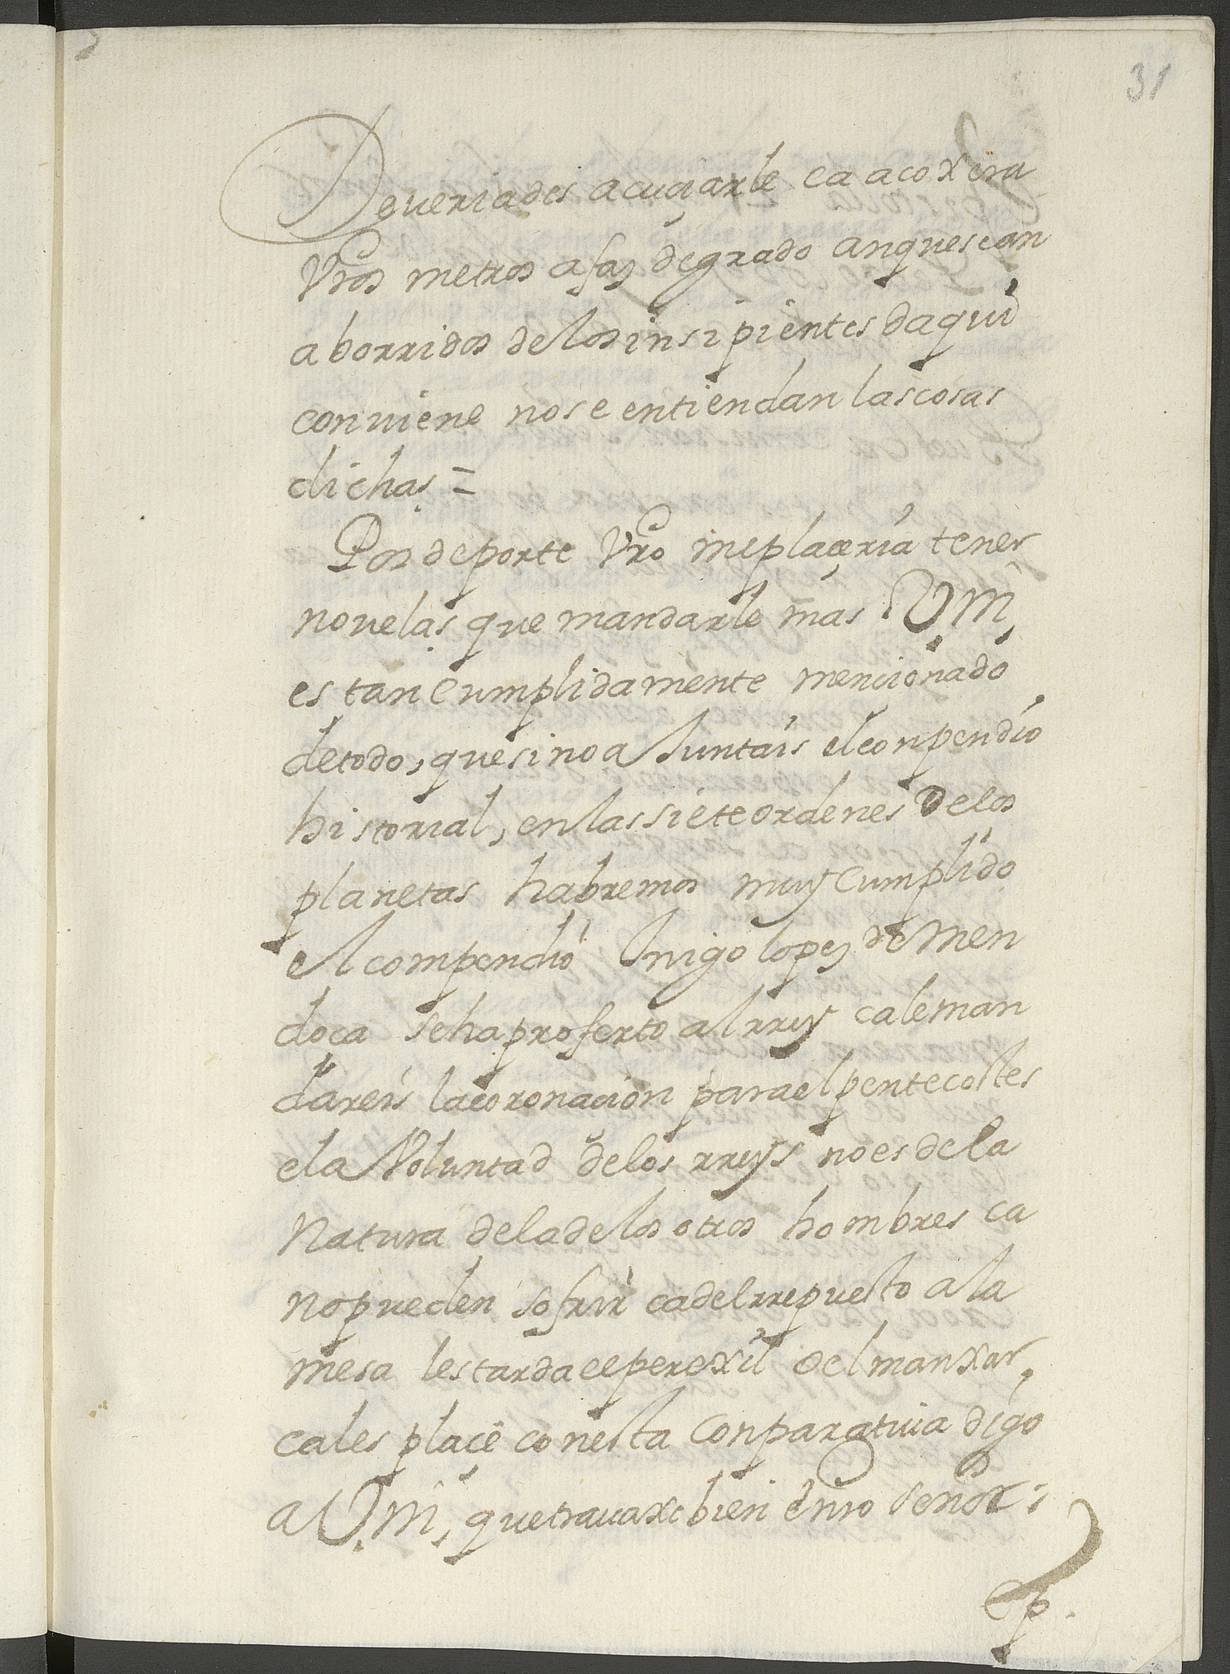 31
Deveriades acuciarle ca acoxera
Vros metros asaz degrado anquesean
aborridos delosinsipientes daqui
conviene nose entiendan lascosas
dichas =
Por deporte Vro meplaceria tener
novelas que mandarle mas VM,
es tan Cumplidamente mencionado
detodo, quesinoa Juntais elconpendio
historial, enlassieteordenes delos
planetas habremos muy Cumplido
elcompendio Inigo lopez de Men
doça sehaproferto alrrey cale man
dareis lacoronacion parael pentecostes
ela Voluntad delos rreys noesdela
Natura deladelos otros hombres ca
nopueden sofrir cadelrrepuesto ala
mesa lestardaeeperexil Oelmanxar,
cales plaçe conesta Conparativa digo
a VM, quetravaxe bien enro Señor;
Ep.